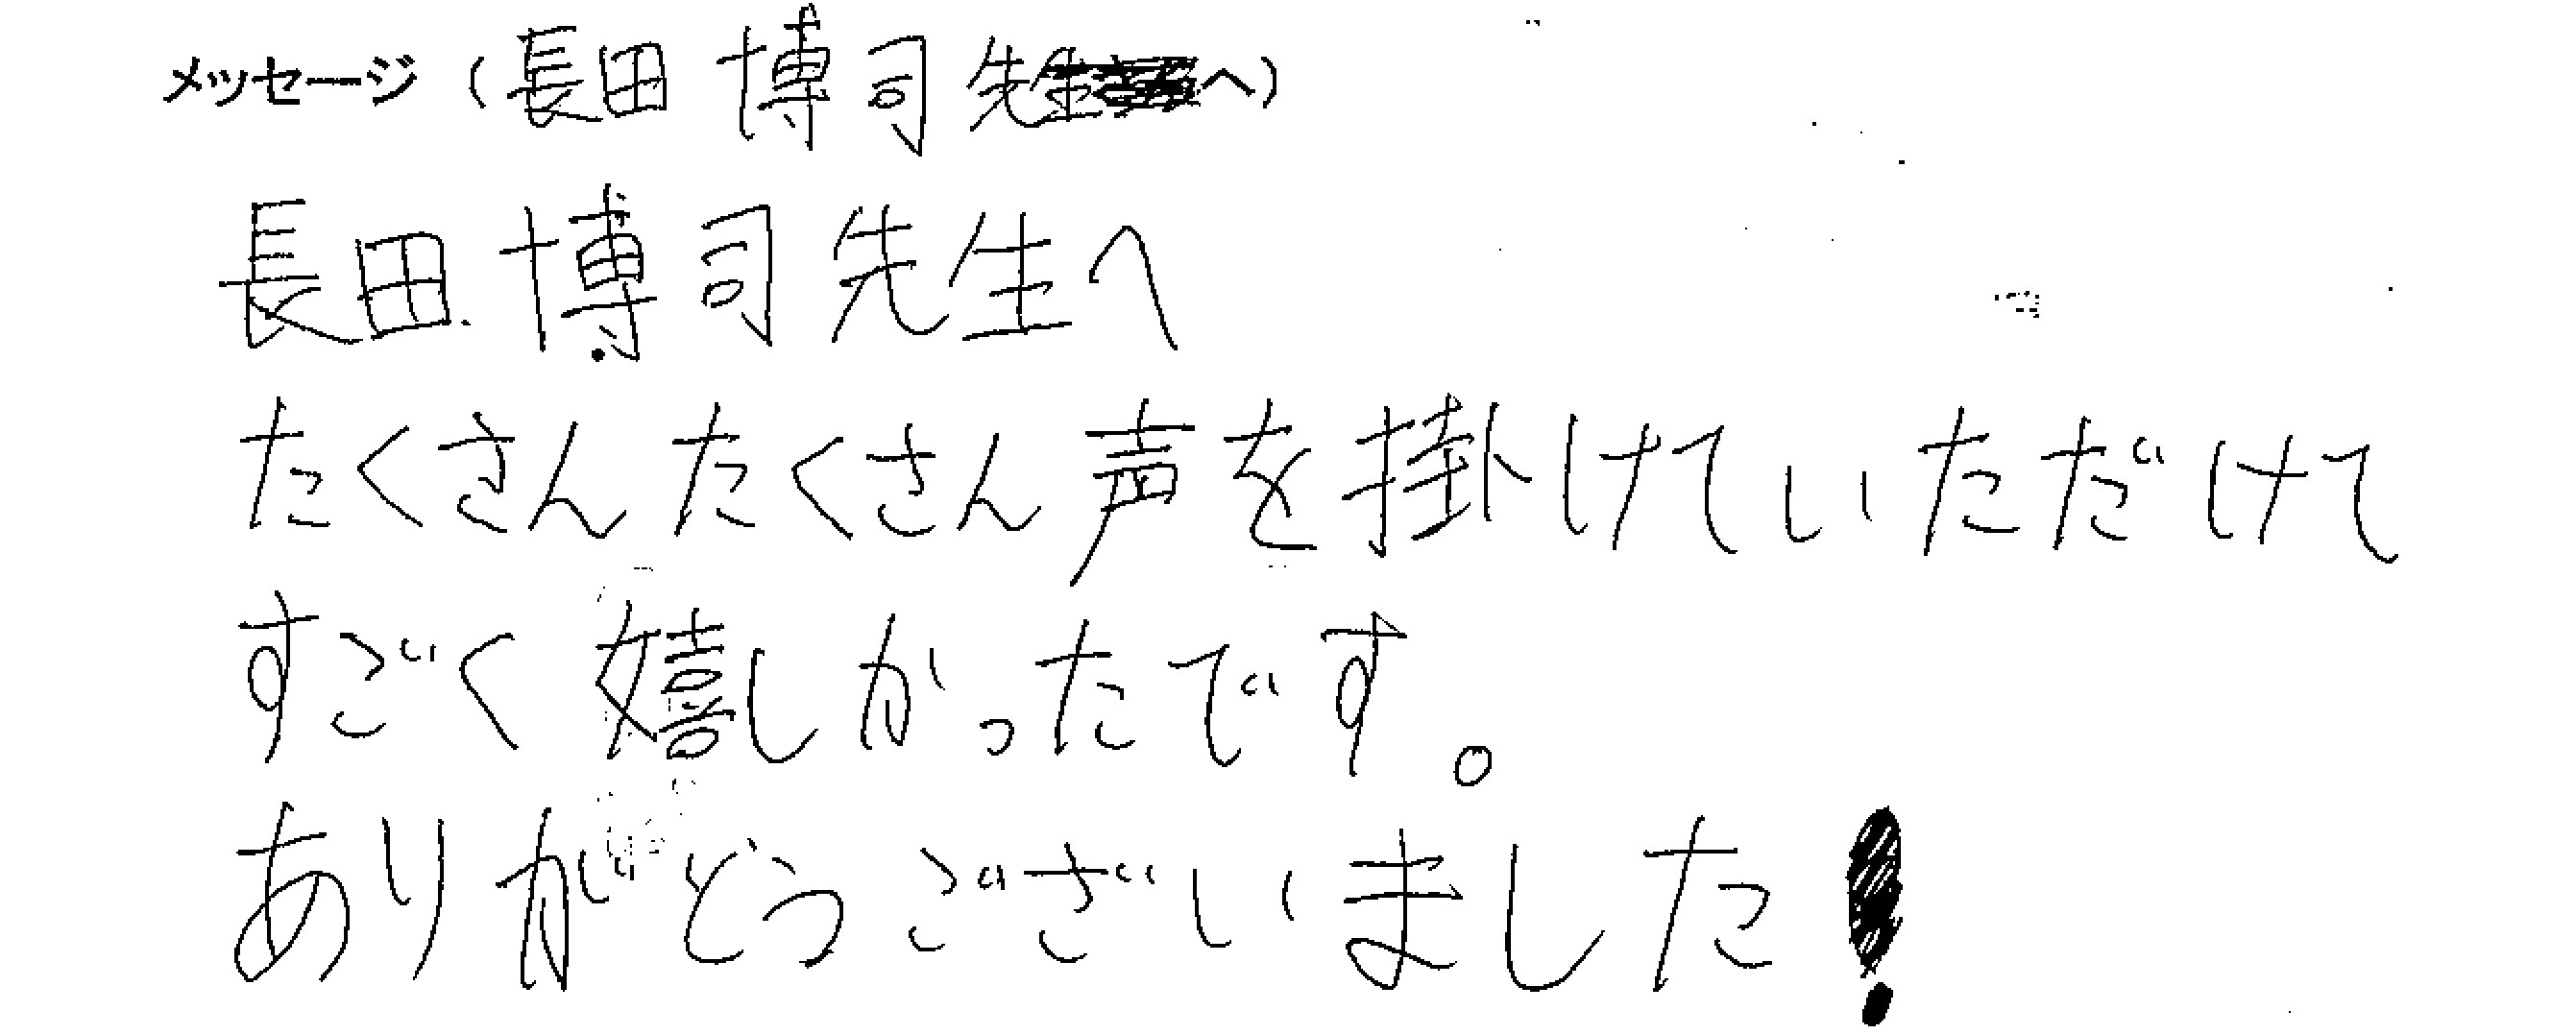 メッセージ（長田 博司 先生へ）
長田 博司先生へ
たくさんたくさん声を掛けていただけて
すごく嬉しかったです。
ありがどうございました!